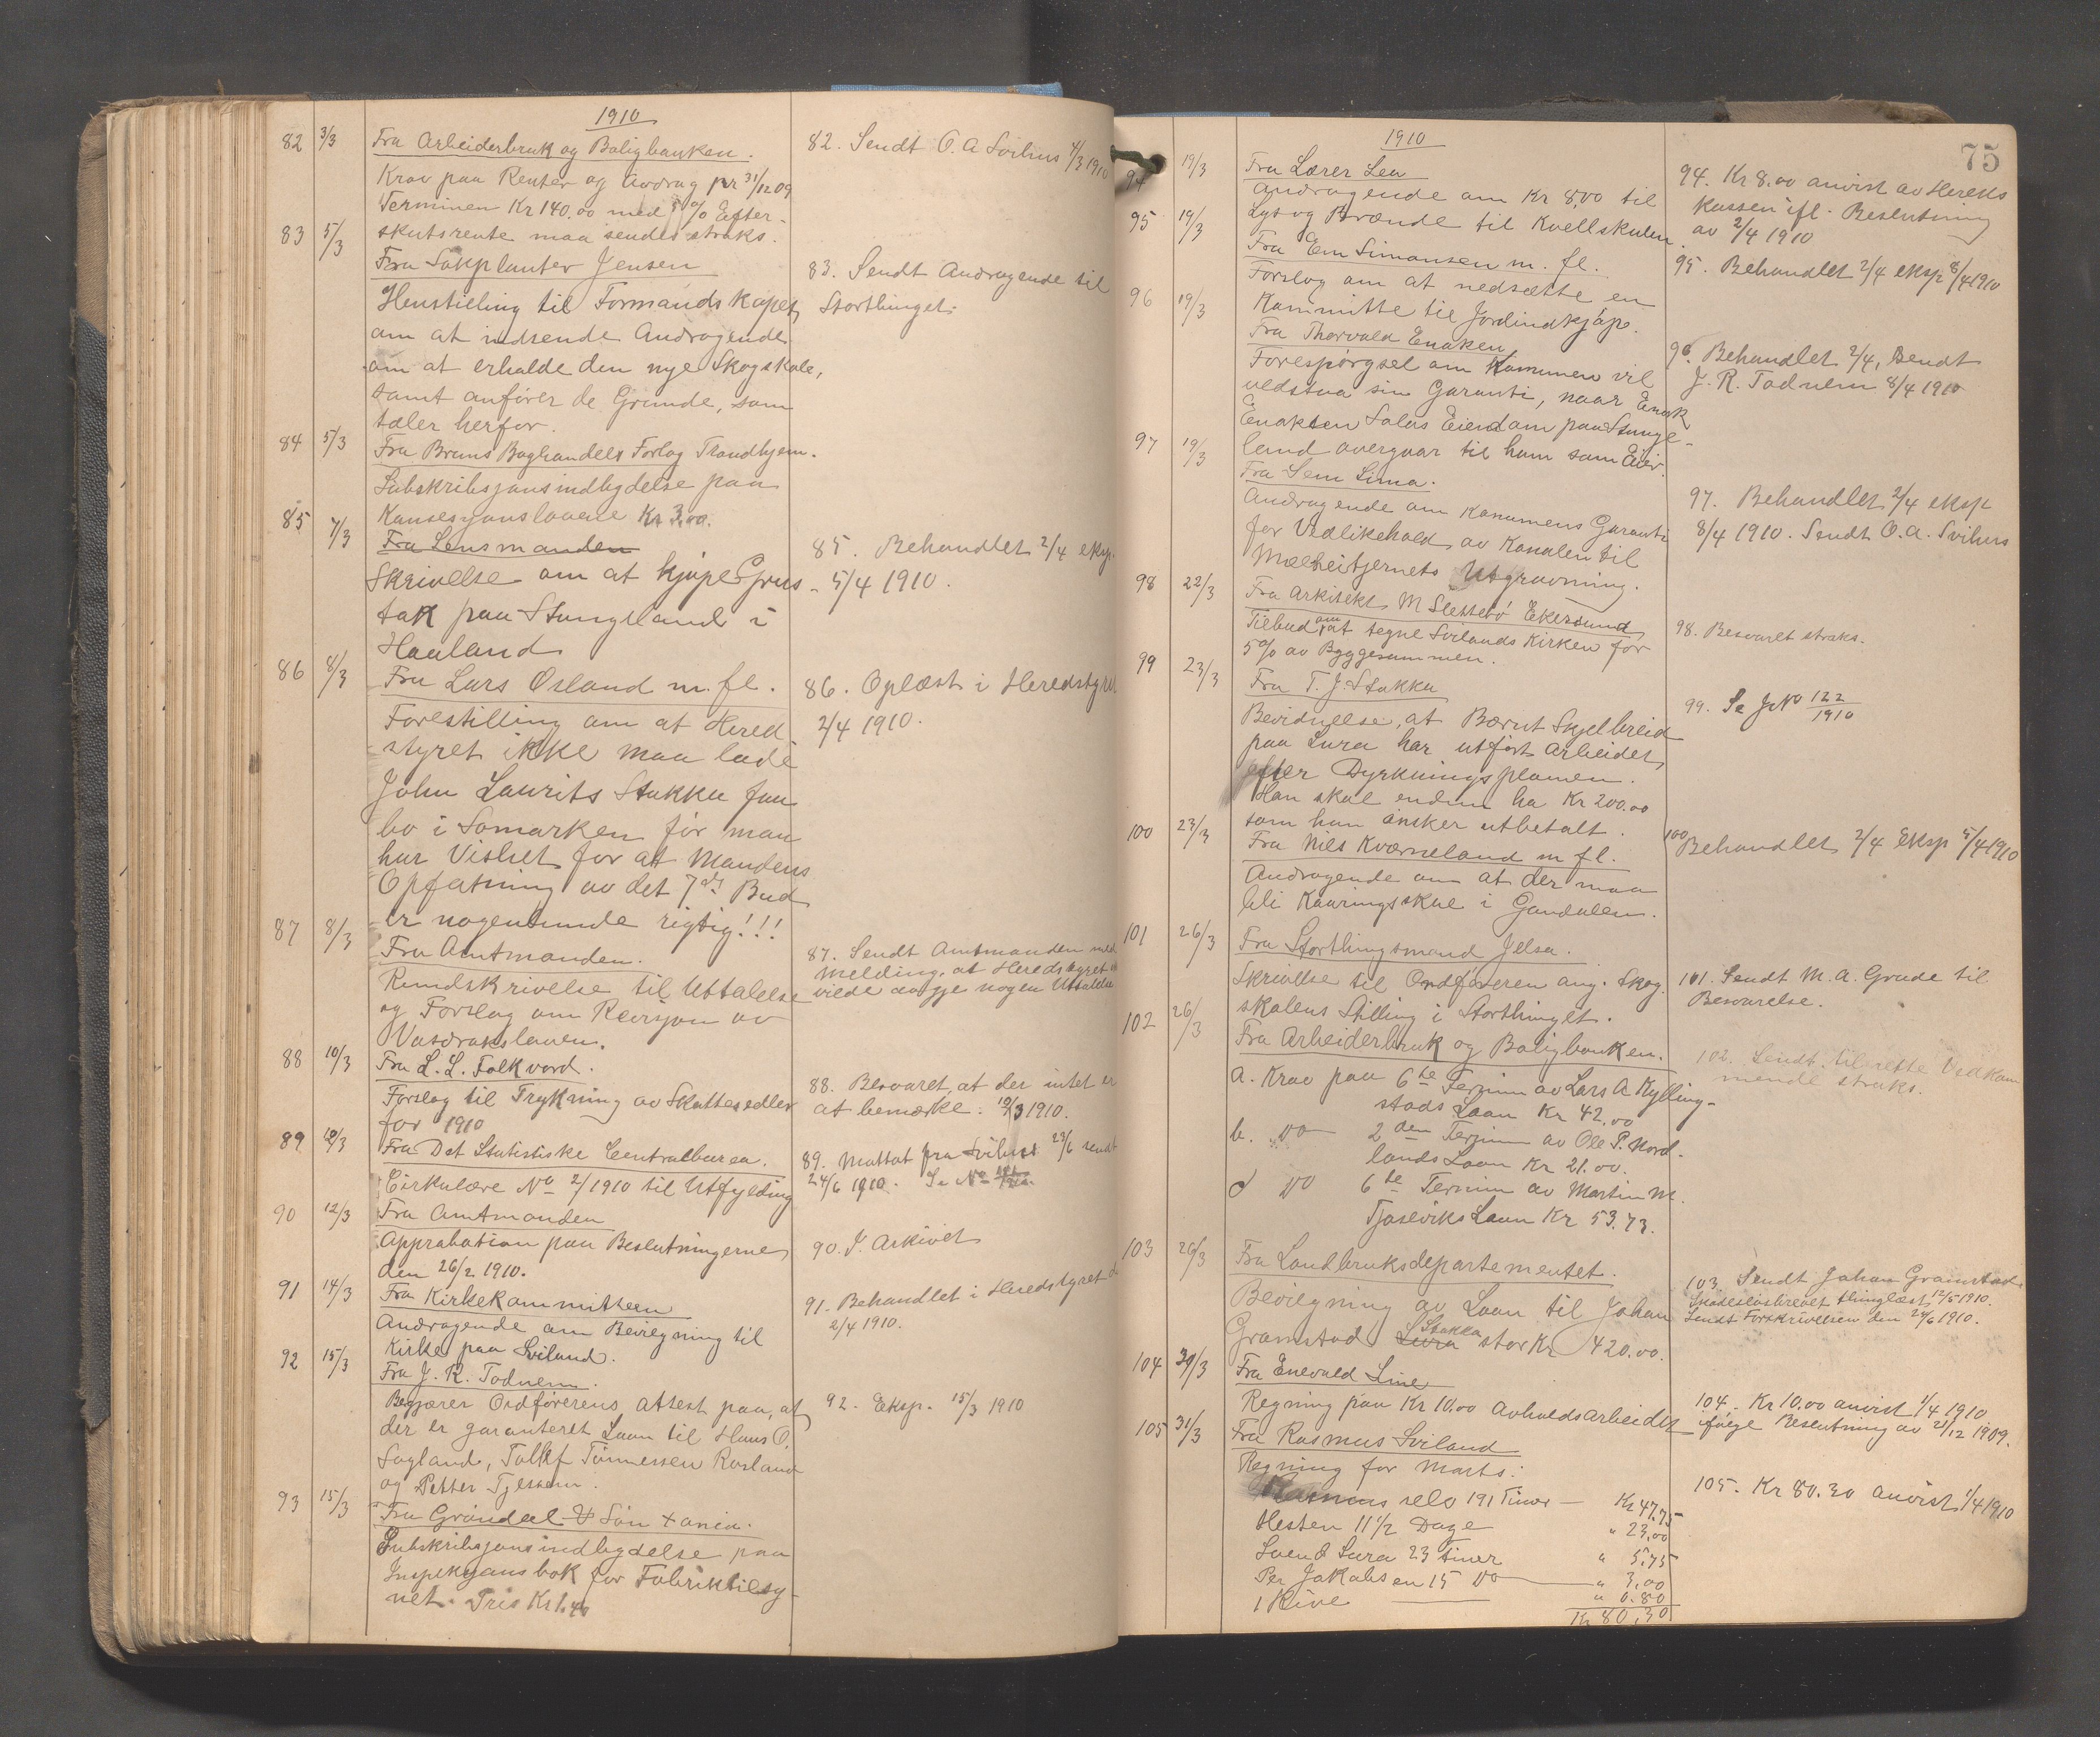 1910
82 3/3 Fra Arbeiderbruk og Boligbanken.
Krav paa Renter og Avdrag pr 31/12 09
Terminen Kr 140.00 med 5% Efter-
skutsrente maa sendes straks.
82. Sendt O. A Svihus 4/3 1910
83 5/3 Fra Sokplanter Jensen
Henstilling til Formandskapet
om at indsende Andragende
om at erholde den nye Skogskole,
samt anfører de Grunde, som
taler herfor.
83. Sendt Andragende til
Storthinget.
84 5/3 Fra Bruns Boghandels Forlag Trondhjem.
Subskribsjonsindbydelse paa
Konsesjonslovene Kr 3.00.
85 7/3 Fra Lensmanden
Skrivelse om at kjøpe Grus-
tak paa Stangeland i
Haaland
85. Behandlet 2/4 eksp.
5/4 1910.
86 8/3 Fra Lars Osland m. fl.
Forestilling om at Hered
styret ikke maa lade
John Laurits Stokka faa
bo i Somarken før man
har Vished for at Mandens
Opfatning av det 7de Bud
er nogenlunde rigtig!!!
86. Oplæst i Heredstyret
2/4 1910.
87 8/3 Fra Amtmanden.
Rundskrivelse til Uttalelse
og Forslag om Revisjon av
Vasdrakslaven.
87. Sendt Amtmanden med
Melding, at Heredstyret ei
vilde avgje nogen Uttalelse
88 10/3 Fra L. L. Folkvord.
Forslag til Trykning av Skattesedler
for 1910
88. Besvaret, at der intet er
at bemærke. 10/3 1910.
89 12/3 Fra Det Statistiske Centralburea.
Cirkulære No 2/1910 til Utfylding
89. Mottat fra Svihus 23/6 sendt
24/6 1910. Se No
90 12/3 Fra Amtmanden
Approbation paa Beslutningerne
den 26/2 1910.
90. I Arkivet
91 14/3 Fra Kirkekommitteen
Andragende om Bevilgning til
Kirke paa Sviland.
91. Behandlet i Heredstyret d
2/4 1910.
92 15/3 Fra J. R. Todnem.
Begjærer Ordførerens Attest paa, at
der er garanteret Laan til Hans O.
Sogland, Tollef Tønnessen Rosland
og Petter Tjessem.
92. Eksp. 15/3 1910
93 15/3 Fra Grøndal & Søn Xania.
Subskribsjonsindbydelse paa
Inspeksjonsbok for Fabriktilsy-
net. Pris Kr 1.40
75
1910
94 19/3 Fra Lærer Lea
Andragende om Kr 8,00 til
Lys og Brænde til Kvellskulen.
94. Kr 8.00 anvist av Hereds
kassen ifl. Beslutning
av 2/4 1910
95 19/3 Fra Em Simonsen m. fl.
Forslag om at nedsætte en
Kommitte til Jordindkjøp.
95. Behandlet 2/4 eksp 8/4 1910
96 19/3 Fra Thorvald Enoksen
Forespørgsel om Komunen vil
vedstaa sin Garanti, naar Enok
Enoksen Salas Eiendom paa Stange-
land overgaar til ham som Eier.
96. Behandlet 2/4, Sendt
J. R. Todnem 8/4 1910
97 19/3 Fra Sem Lima.
Andragende om Konumens Garanti
for Vedlikehold av Kanalen til
Mælheitjernets Utgravning.
97. Behandlet 2/4 eksp
8/4 1910. Sendt O. A. Svihus
98 22/3 Fra Arkitekt M Slettebø Ekersund
Tilbud om at tegne Svilands Kirken for
5% av Byggesummen.
98. Besvaret straks.
99 23/3 Fra T. J. Stokka
Bevidnelse, at Bærnt Skjelbreid
paa Lura har utført Arbeidet
efter Dyrkningsplanen.
Han skal endnu ha Kr 200.00
som han ønsker utbetalt.
99. Se J No 122/1910
100 23/3 Fra Nils Kværneland m fl.
Andragende om at der maa
bli Kaaringsskue i Gandalen.
100 Behandlet 2/4 Eksp 5/4 1910
101 26/3 Fra Storthingsmand Jelsa.
Skrivelse til Ordføreren ang. Skog.
skolens Stilling i Storthinget.
101. Sendt M. A. Grude til
Besvarelse.
102 26/3 Fra Arbeiderbruk og Boligbanken.
a. Krav paa 6te Termin av Lars A Kylling-
stads Laan Kr 42.00
b. Do 2den Termin av Ole P. Nord-
lands Laan Kr 21.00.
d Do 6te Termin av Martin M.
Tjosevikes Laan Kr 53.73.
102. Sendt tilrette Vedkom
mende straks.
103 26/3 Fra Landbruksdepartementet.
Bevilgning av Laan til Johan
Gramstad Lura Stokka stor Kr 420.00.
103 Sendt Johan Gramstad
Skadesløsbrevet thinglæst 12/5 1910.
Sendt Forskrivelsen den 24/6 1910.
104 30/3 Fra Enevald Line
Regning paa Kr 10.00 Avholdsarbeidet
104. Kr 10.00 anvist 1/4 1910
ifølge Beslutning av 21/12 1909.
105 31/3 Fra Rasmus Sviland
Regning for Marts:
Rasmus selv 191 Timer — Kr 47.75
Hesten 11 1/2 Dage " 23.00
Svend Lura 23 timer " 5.75
Per Jakobsen 15 Do " 3.00
1 Rive " 0.80
Kr 80.30
105. Kr 80.30 anvist 1/4 1910